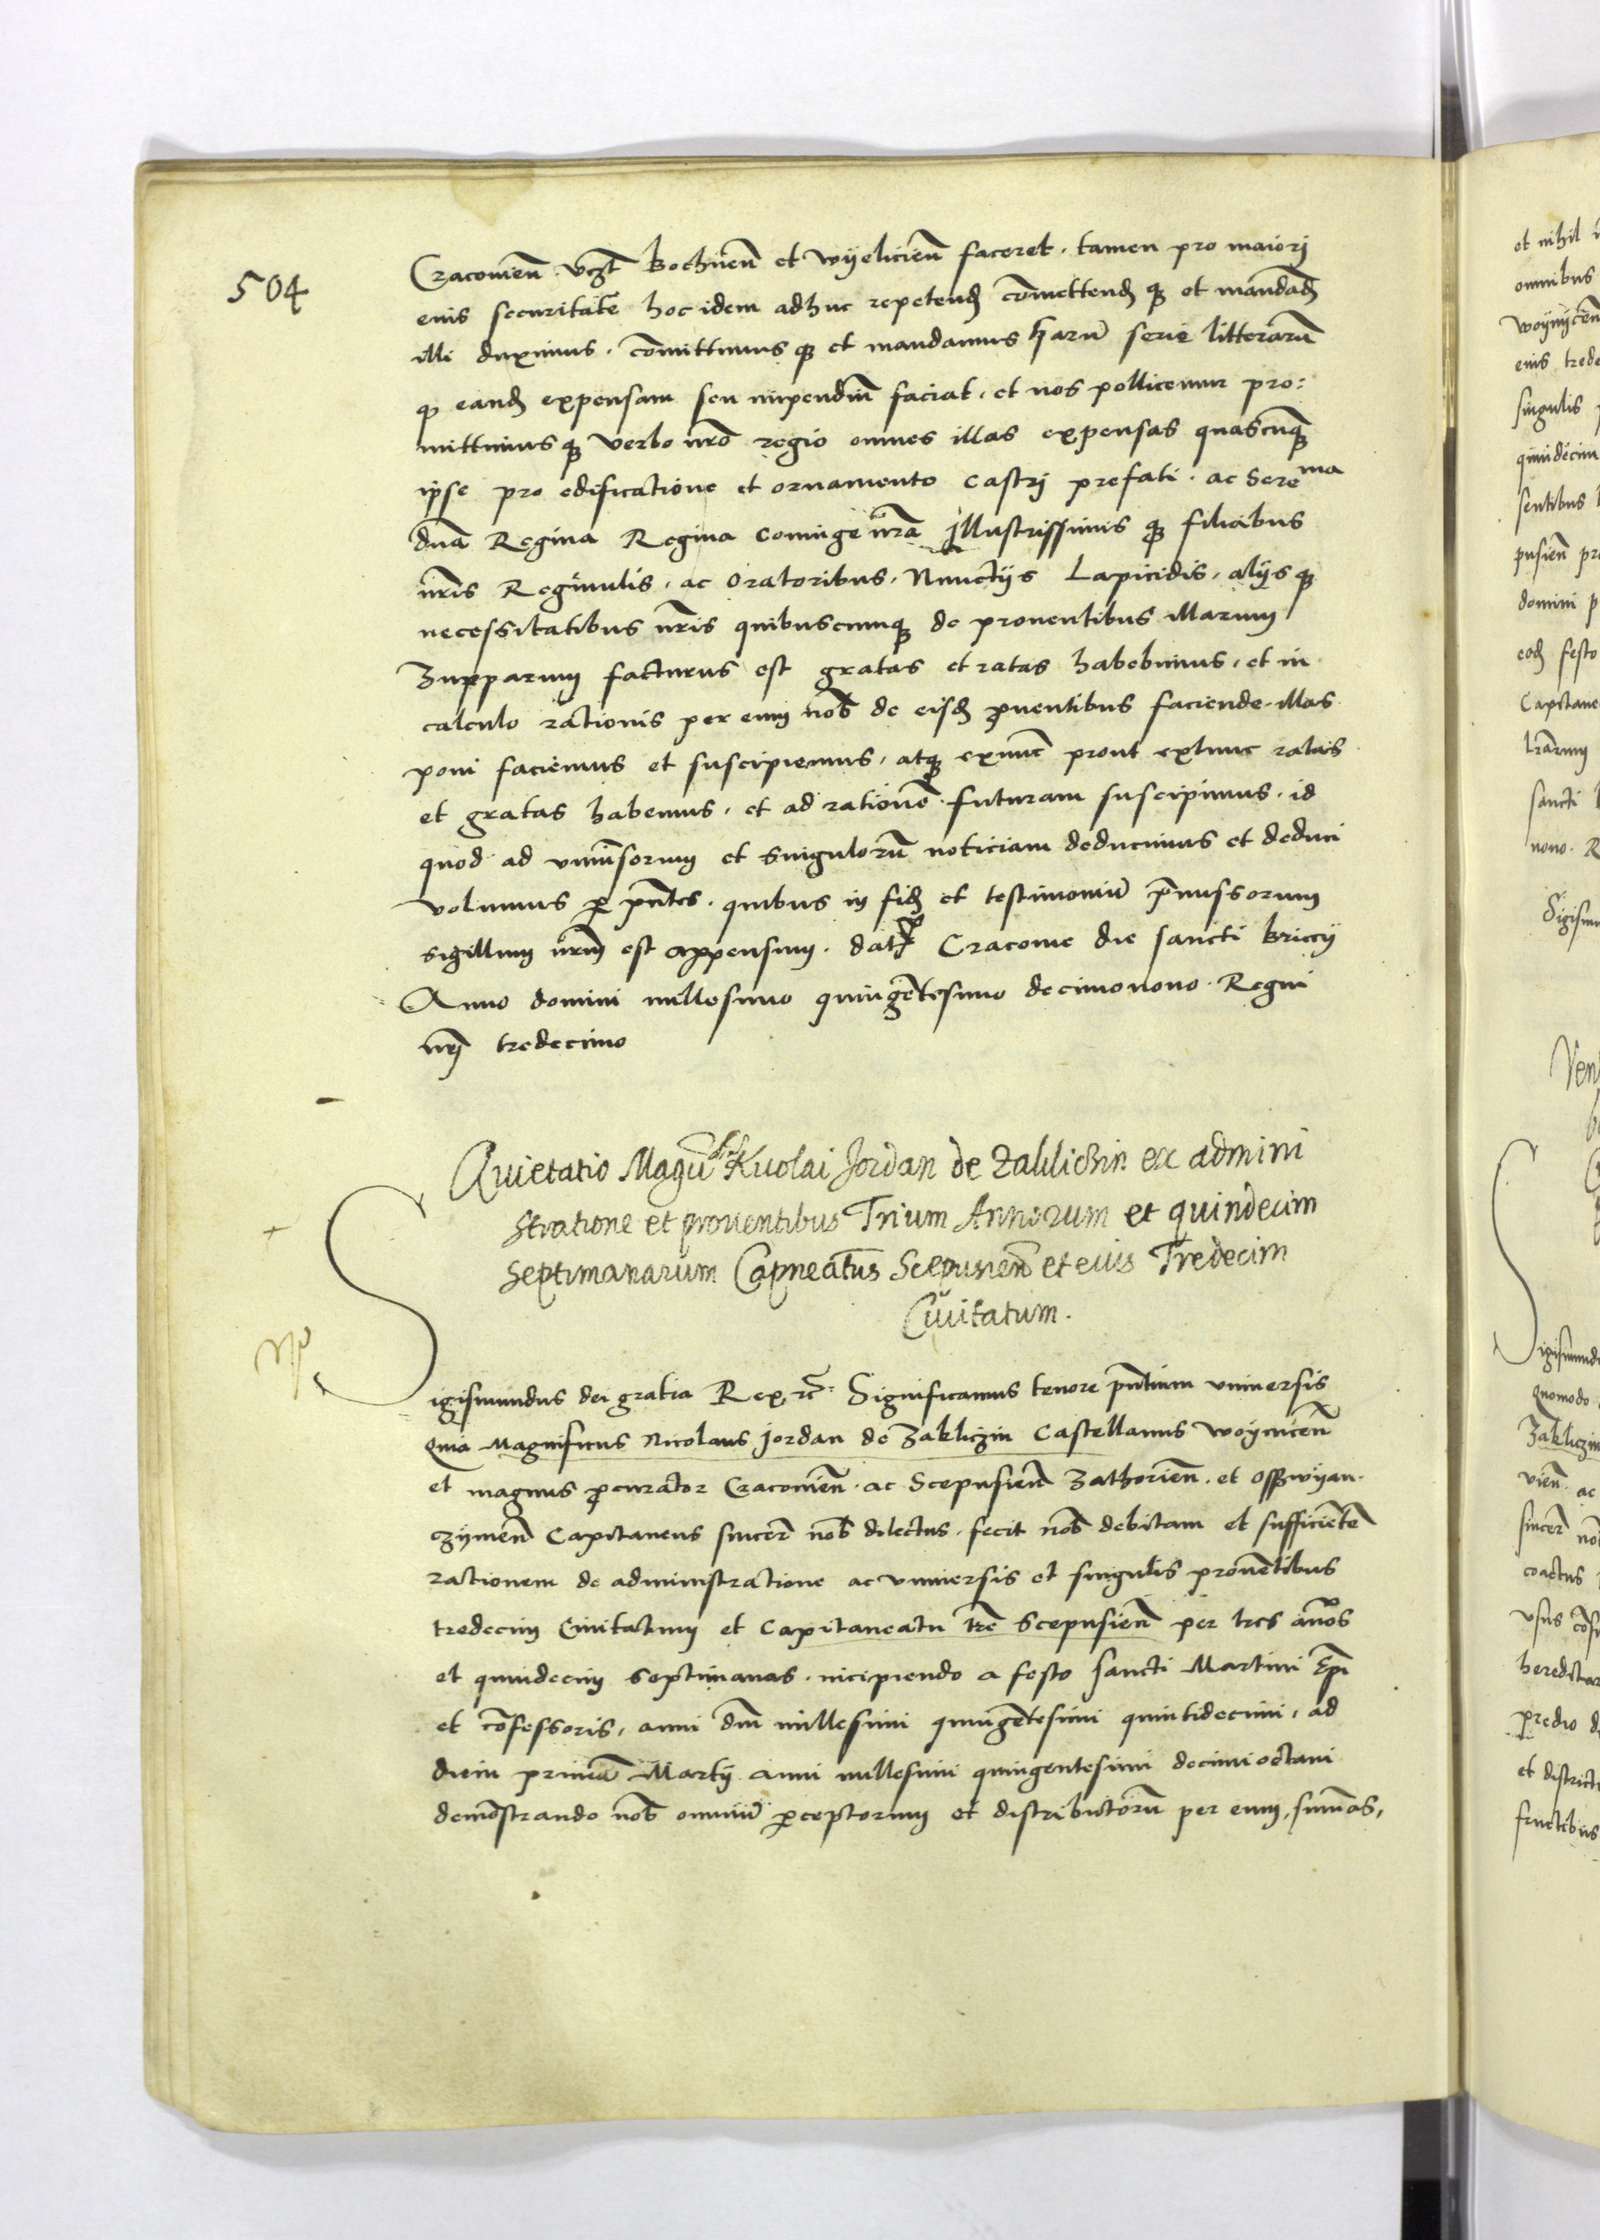 504
Cracovień vcȝt Bochneń et wyelicień faceret · tamen pro maiorj
eius securitate hoc idem adhuc repetend comittend que et mandand
illi duximus · comittimus que et mandamus harū serie litterarū
quod eand expensam seu impendiū faciat · et nos pollicemur pro:
mittimus que verbo nro regio omnes illas expensas quascunque
ipse pro edificatione et ornamento castrj prefati · ac Sere ma
dna Regina Regina coniuge nra jllustrissimis que filiabus
nris Reginulis · ac oratoribus · Nunctijs Lapicidis · alijs que
necessitatibus nris quibuscunque de prouentibus illarum
Zupparum facturus est gratas et ratas habebimus · et in
calculo rationis per eum nob de eisd prouentibus faciende · illas
poni faciemus et suscipiemus · atque exnunc prout extunc ratas
et gratas habemus · et ad rationē futuram suscipimus · id
quod ad vniuersorum et singulorū noticiam deducimus et deduci
volumus per pntes · quibus in fid et testimoniū pmissorum
sigillum nrm est appensum · dat Cracouie die sancti Briccij
Anno domini millesimo quingētesimo decimonono · Regni
nrj tredecimo
Quietatio Magci Nicolai Jordan de Zakliczin ex admini
stratione et prouentibus Trium Annorum et quindecim
Septimanarum Capneatus Scepusień et eius Tredecim
Ciuitatum.
Sigismundus dei gratia Rex rc · Significamus tenore pntium vniuersis
Quia Magnificus Nicolaus jordan de Zakliczin Castellanus woynicēn
et magnus procurator Cracovień · ac Scepusień Zathorień · et Osswyan-
czymeń Capitaneus sincer nob dilectus · fecit nob debitam et sufficiētē
rationem de administratione ac vniuersis et singulis prouētibus
tredecim Ciuitatum et Capitaneatu tre Scepusień per tres annos
et quindecim septimanas · incipiendo a festo sancti Martini Epi
et cōfessoris, anni dm millesimi quingētesimi quintidecimi, ad
diem primā Martij anni millesimi quingentesimi decimi octaui
demōstrando nob omniū perceptorum et distributorū per eum, sumas,